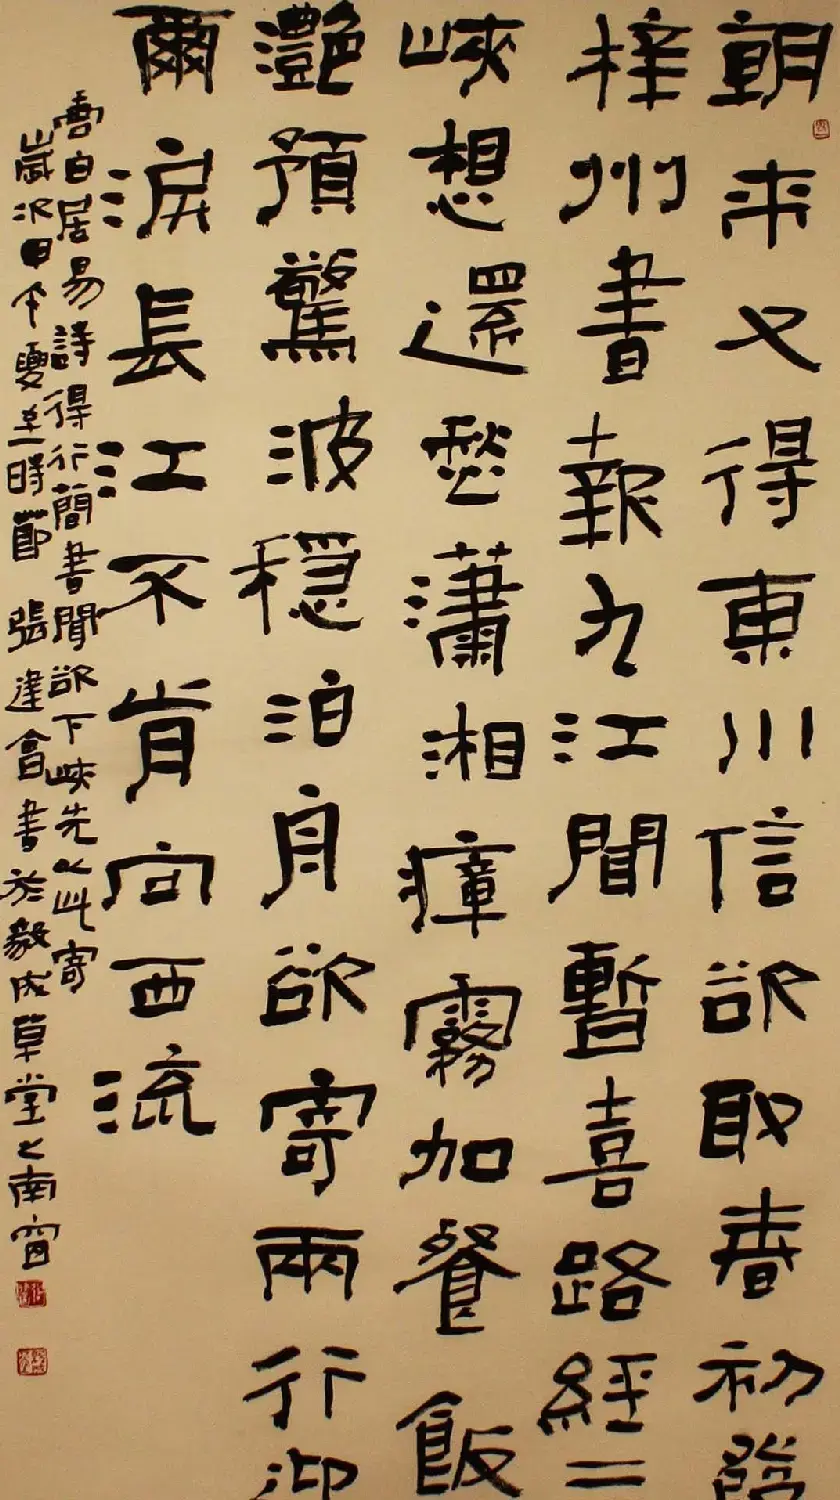 朝来又得東川信欲取春初發
梓州書報九江聞暫喜路經三
峽想還愁瀟湘瘴霧加餐飯
灩預驚波穩泊舟欲寄兩行迎
爾淚長江不肯向西流
書白居易詩得行簡書聞欲下峽先以此寄
歲次甲午夏至時節 張建會書於毅成草堂之南窗